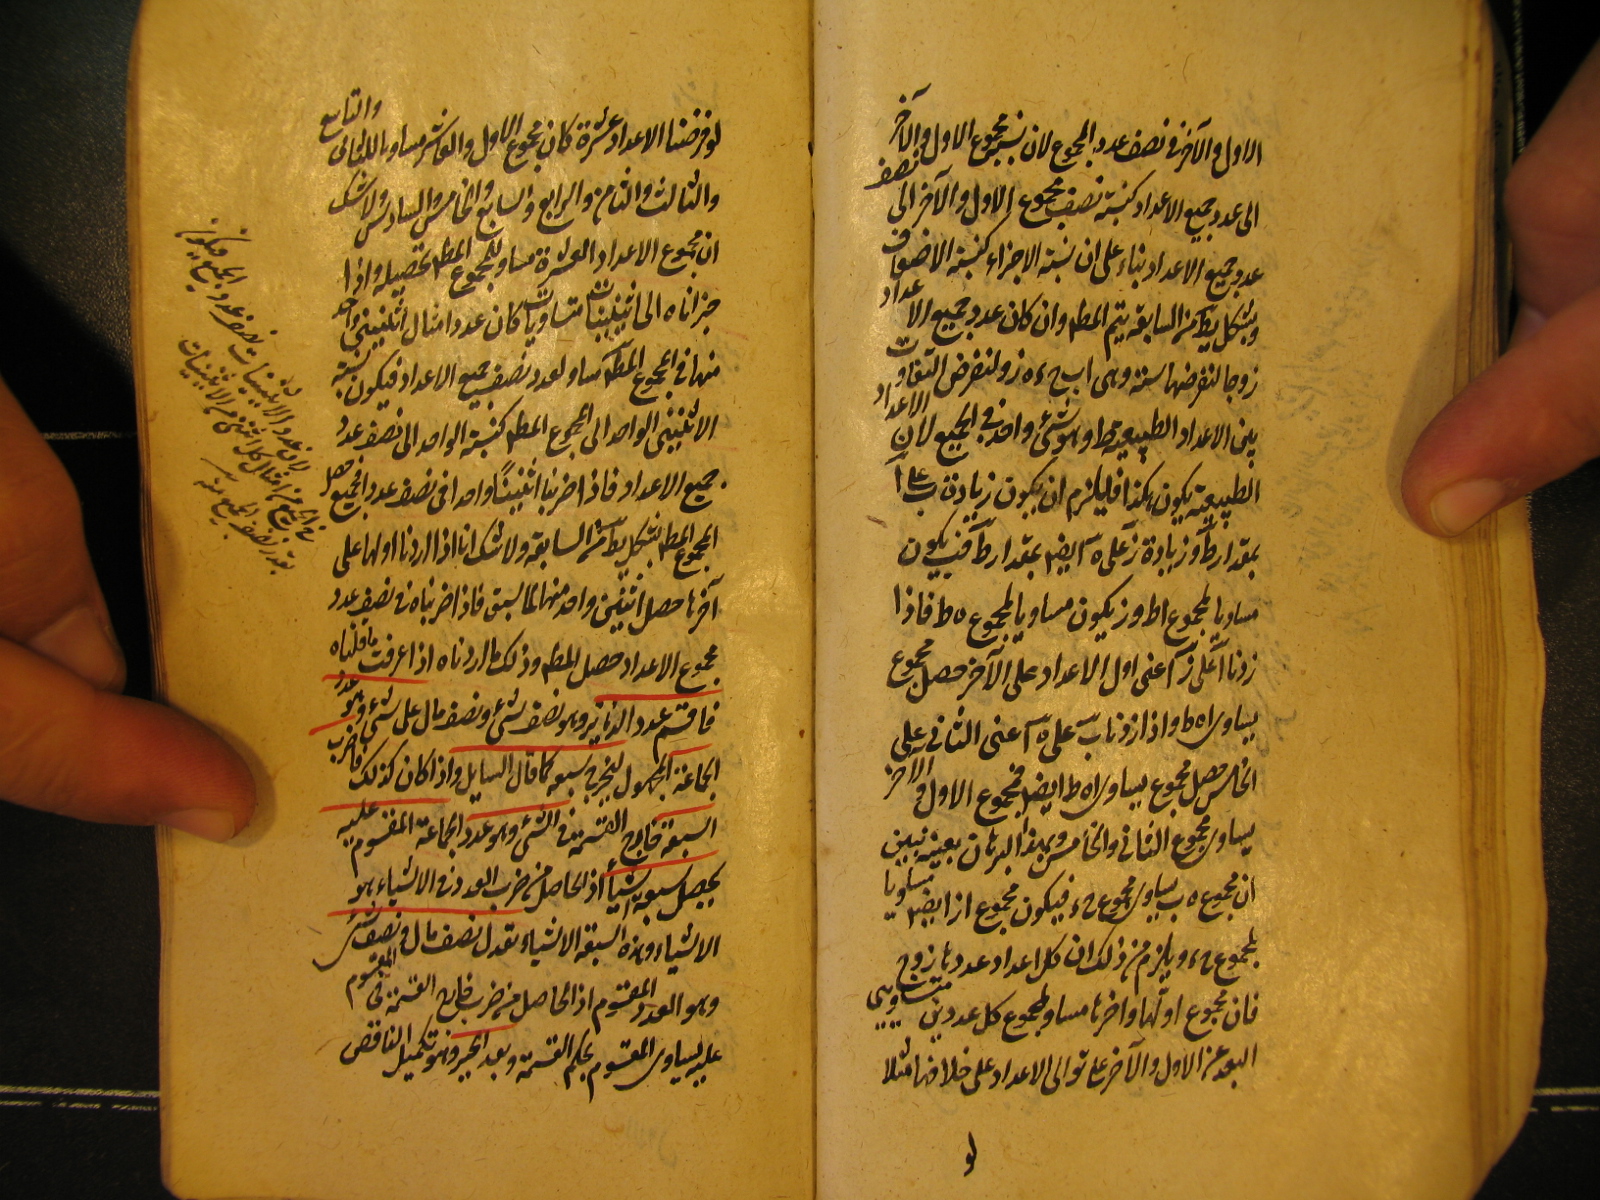 الاول والآخر فى نصف عدد المجموع لان نسبة مجموع الاول والآخر
الى عدد جميع الاعداد كنسبة نصف مجموع الاول والآخر الى نصف
عدد جميع الاعداد بناء على ان نسبة الاجزاء كنسبة الاضعاف
وبشكل يط من السابقة يتم المط وان كان عدد جميع الاعداد
زوجا لنفرضها ستة وهى اب ج ء ه ز ولنفرض التفاوت
بين الاعداد الطبيعية ط وهو شئ واحد فى الجميع لان الاعداد
الطبيعية يكون هكذا فيلزم ان يكون زيادة ب على آ
بمقدار ط وزيادة ز على ه ايضا بمقدار ط فب يكون
مساويا لمجموع اط و ز يكون مساويا لمجموع ه ط فاذا
زدنا آ على ز آ اعنى اول الاعداد على الآخر حصل مجموع
يساوى اه ط واذا زدنا ب على ه اعنى الثانى على
الخامس حصل مجموع يساوى اه ط ايضا فمجموع الاول والآخر
يساوى مجموع الثانى والخامس وبهذا البرهان بعينه نبين
ان مجموع ه ب يساوى مجموع ج ء فيكون مجموع از ايضا مساويا
لمجموع ج ء ويلزم من ذلك ان كل اعداد عددها زوج
فان مجموع اولها وآخرها مساو لمجموع كل عددين متساويى
البعد عن الاول والآخر على توالى الاعداد على خلافها مثلا
لو
لو فرضنا الاعداد عشرة كان مجموع الاول والعاشر مساويا للثانى والتاسع
والثالث والثامن والرابع والسابع والخامس والسادس ولا شك
ان مجموع الاعداد العشرة مساو للمجموع المط تحصيله واذا
جزأناه الى اثنينيات متساويات كان عدد امثال اثنينى واحد
منها فى المجموع المط مساو لعدد نصف جميع الاعداد فيكون نسبة
الاثنينى الواحد الى المجموع المط كنسبة الواحد الى نصف عدد
جميع الاعداد فاذا ضربنا اثنينيا واحدا فى نصف عدد الجميع حصل
المجموع المط بشكل يط من السابقة ولا شك انا اذا زدنا اولها على
آخرها حصل اثنينى واحد منها لما سبق فاذا ضربناه فى نصف عدد
مجموع الاعداد حصل المط وذلك ما اردناه اذا عرفت ما قلناه
فاقسم عدد الدنانير وهو نصف شئ ونصف مال على شئ وهو عدد
الجماعة المجهول ليخرج سبعة كما قال السايل واذا كان كذلك فاضرب
السبعة خارج القسمة فى الشئ وهو عدد الجماعة المقسوم عليه
يحصل سبعة اشياء اذ الحاصل من ضرب العدد فى الاشياء هو
الاشياء وهذه السبعة الاشياء تعدل نصف مال ونصف شئ
وهو العدد المقسوم اذ الحاصل من ضرب خارج القسمة فى المقسوم
عليه يساوى المقسوم بحكم القسمة وبعد الجبر وهو تكميل الناقص